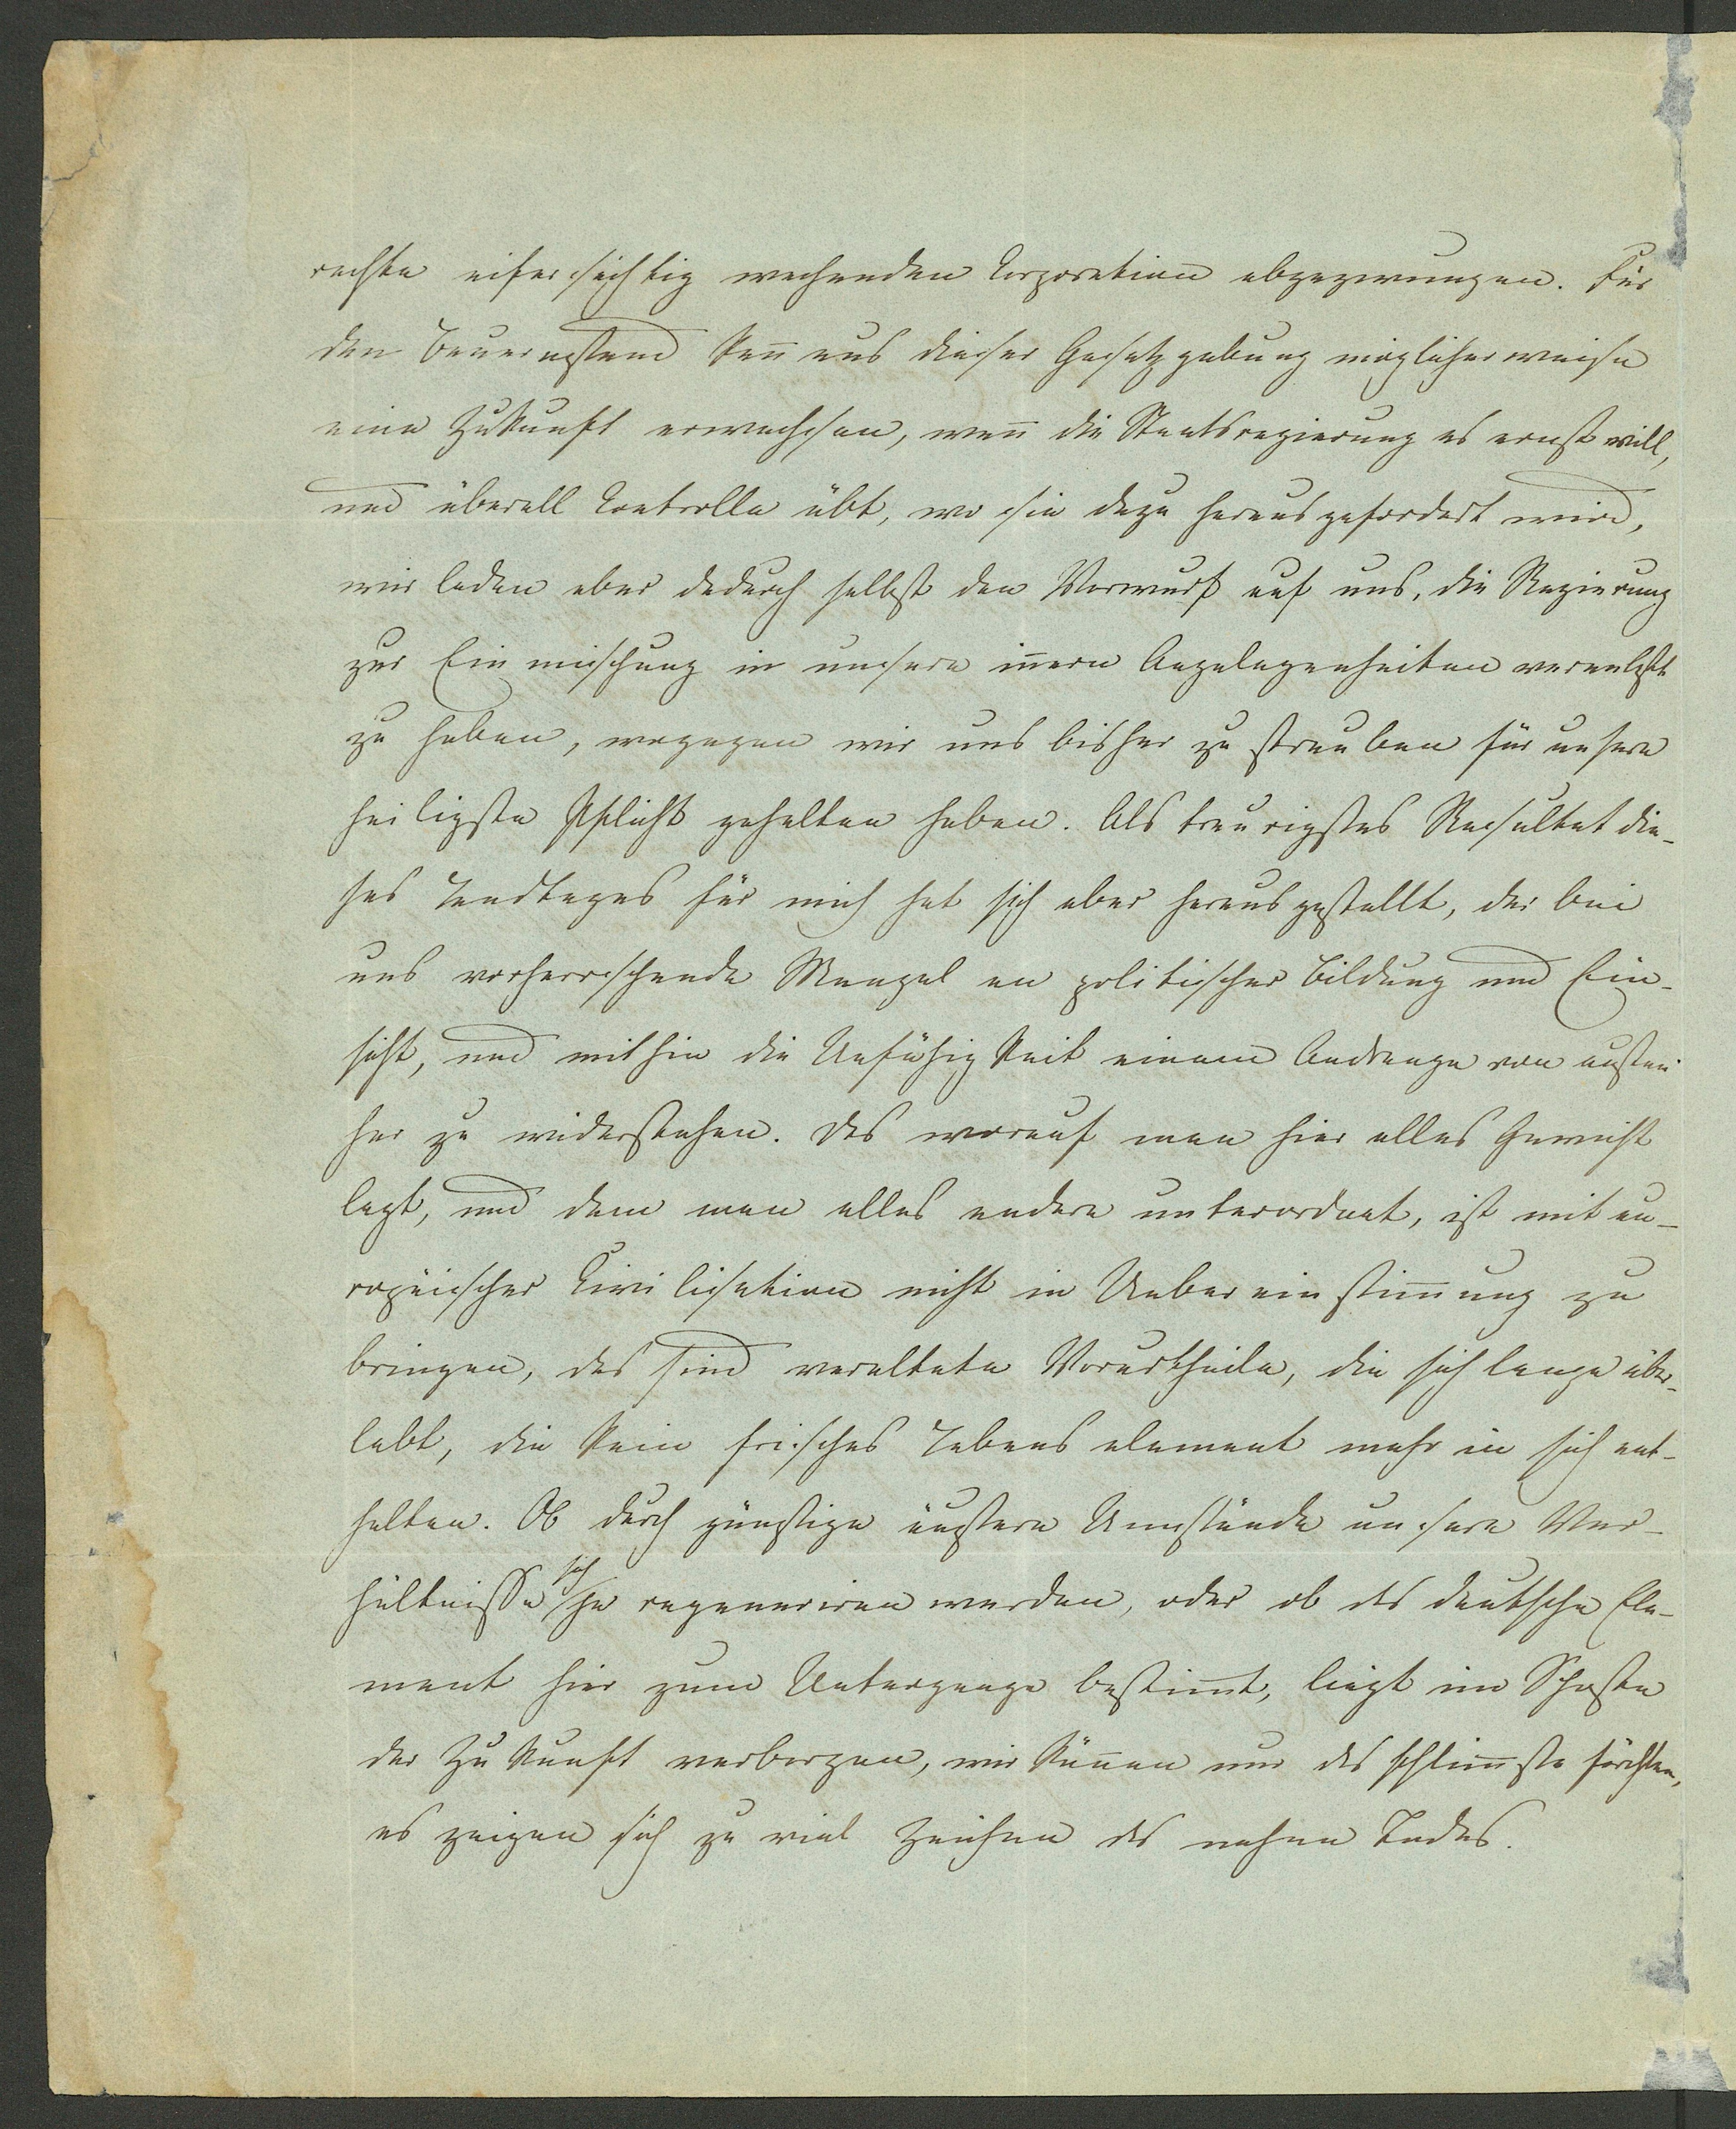 rechte eifersüchtig wachenden Corporation abgezwungen. Für
den Bauernstand kan̄ aus dieser Gesetzgebung möglicherweise
eine Zukunft erwachsen, wen̄ die Staatsregierung es ernst will,
und überall Controlle übt, wo sie dazu herausgefordert wird,
wir laden aber dadurch selbst den Vorwurf auf uns, die Regierung
zur Einmischung in unsere in̄ern Angelegenheiten veranlaßt
zu haben, wogegen wir uns bisher zu sträuben für unsere
heiligste Pflicht gehalten haben. Als traurigstes Resultat die-
ses Landtages für mich hat sich aber herausgestellt, der bei
uns vorherrschende Mangel an politischer Bildung und Ein-
sicht, und mithin die Unfähigkeit einem Andrange von außen
her zu widerstehen. Das worauf man hier alles Gewicht
legt, und dem man alles andere unterordnet, ist mit eu-
ropäischer Civilisation nicht in Uebereinstim̄ung zu
bringen, das sind veraltete Vorurtheile, die sich lange über-
lebt, die kein frisches Lebenselement mehr in sich ent-
halten. Ob durch günstige äußere Umstände unsere Ver-
hältnisse sich je regeneriren werden, oder ob das deutsche Ele-
ment hier zum Untergange bestim̄t, liegt im Schoße
der Zukunft verborgen, wir kön̄en nur das schlim̄ste fürchten,
es zeigen sich zu viel Zeichen des nahen Todes.